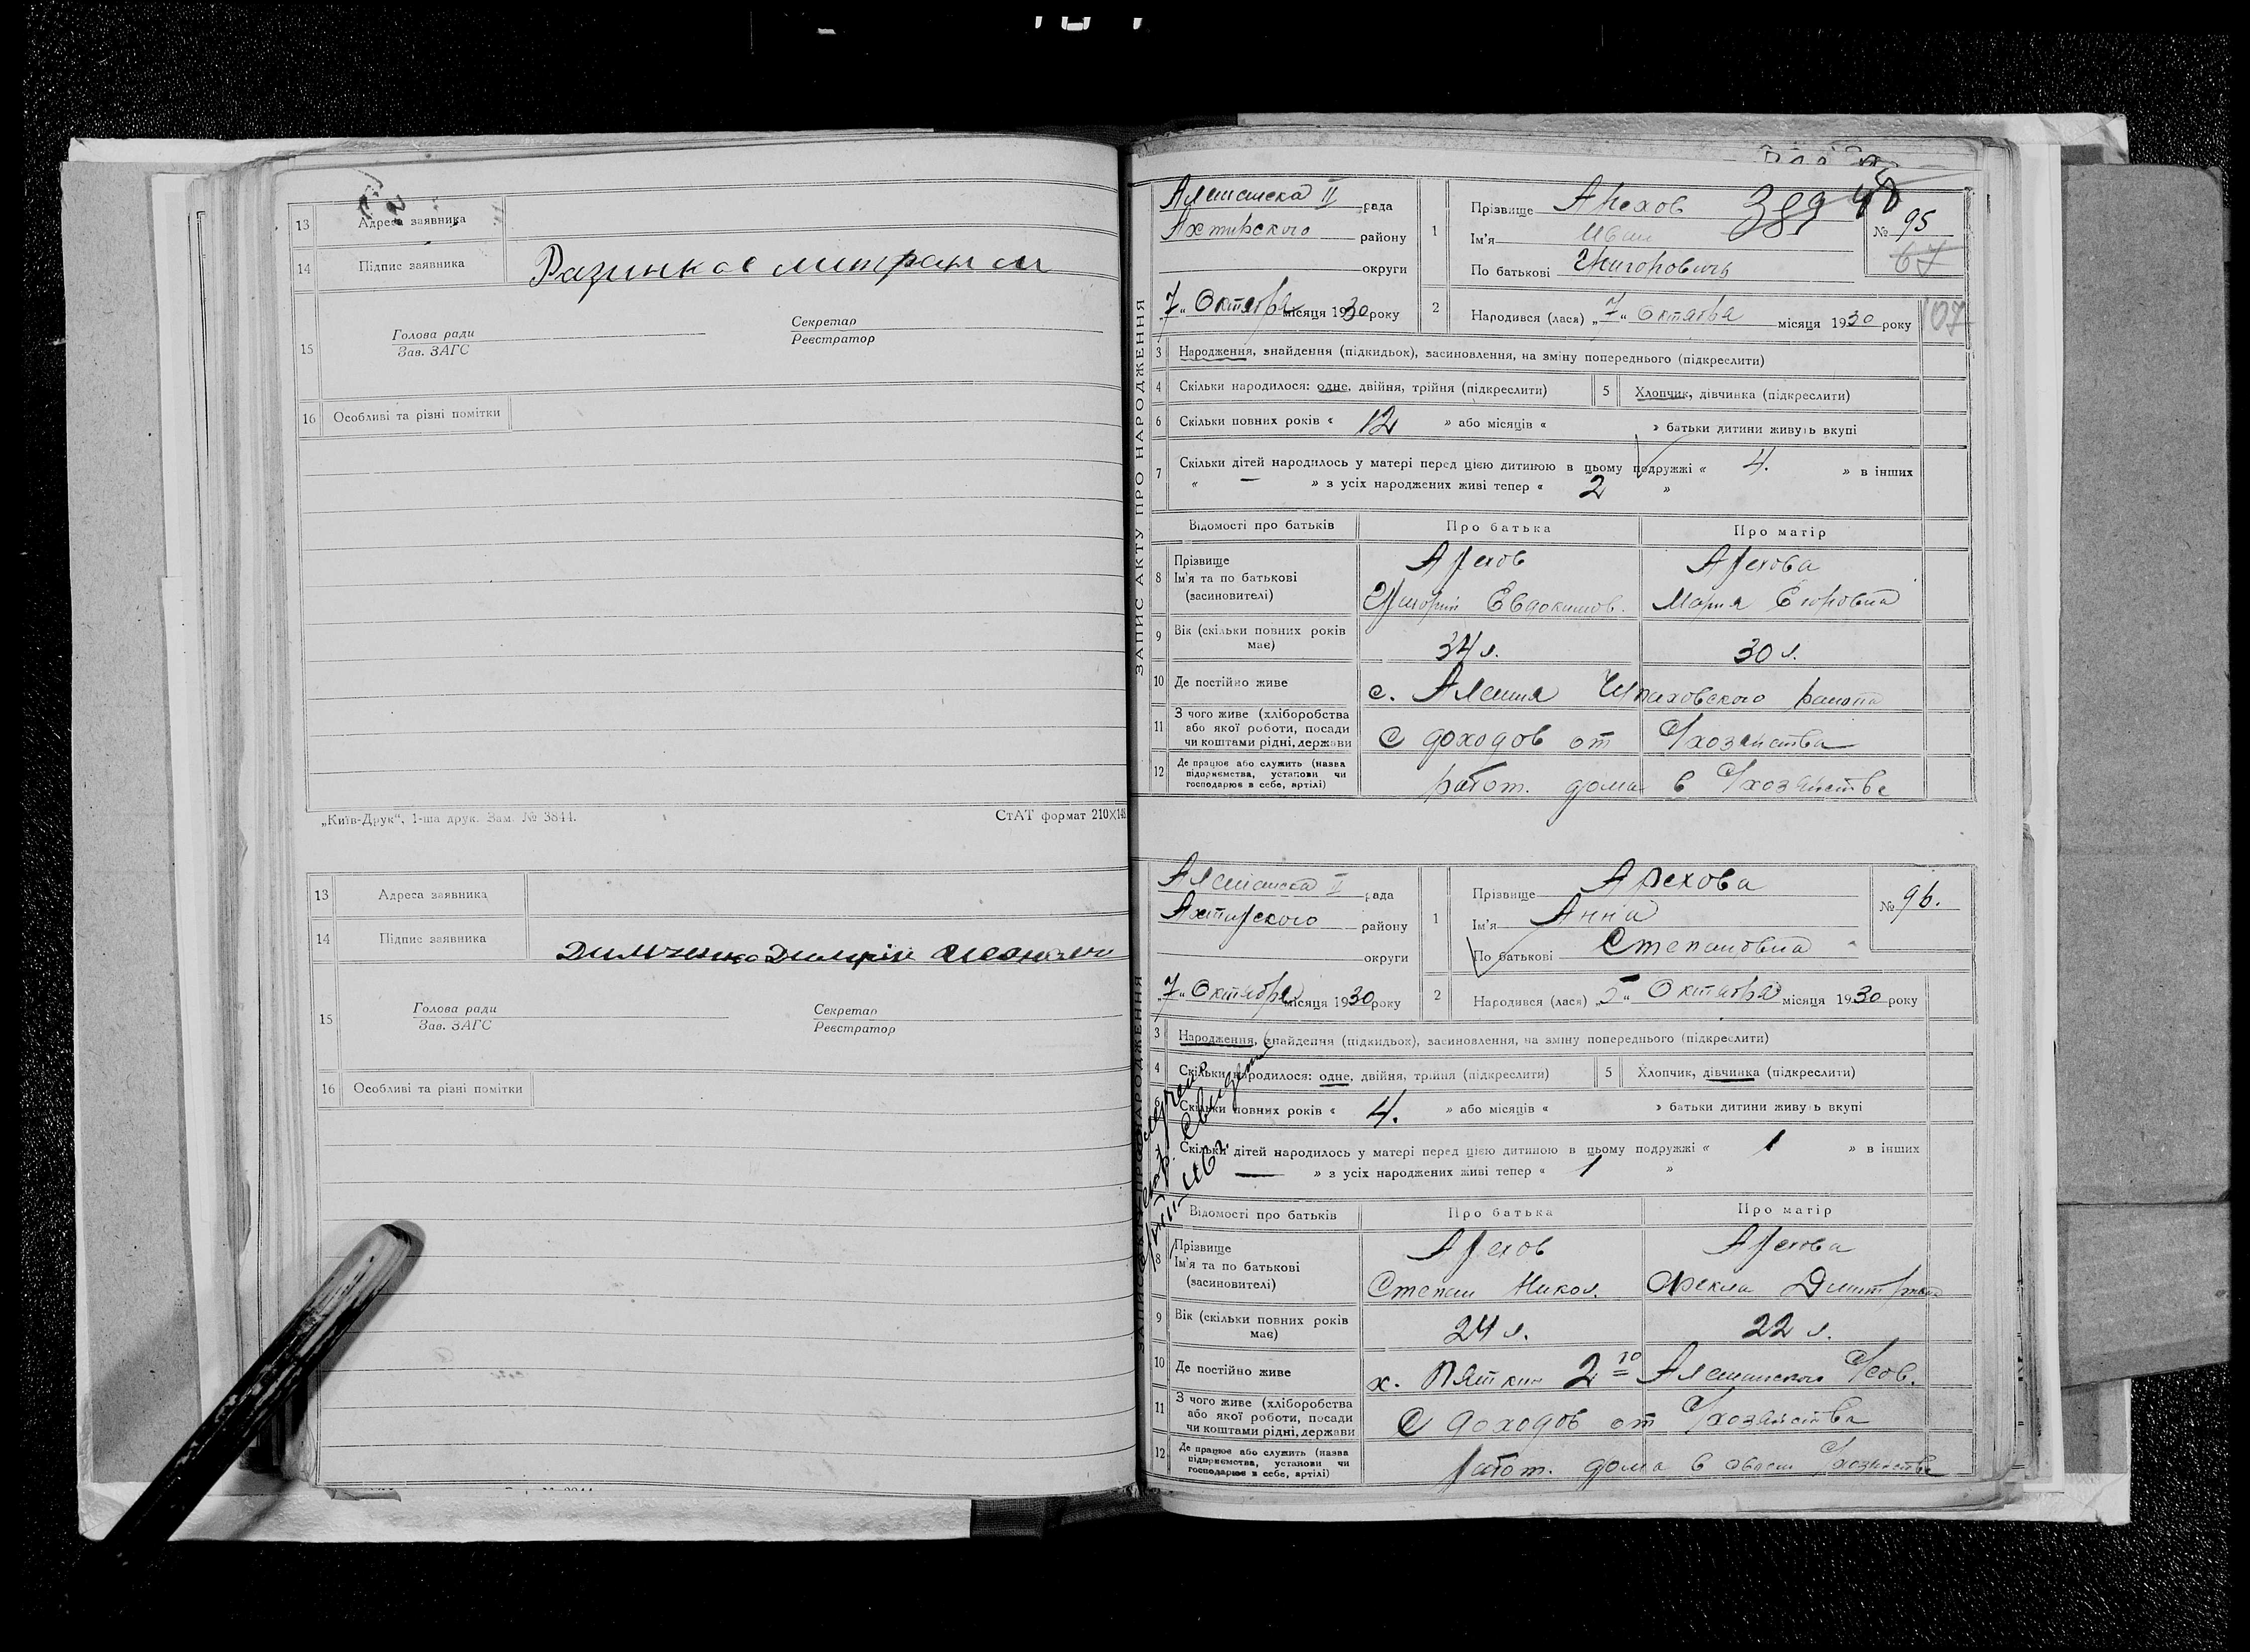 13 Адреса заявника
14 Підпис заявника
15 Голова ради
Зав. ЗАГС
Секретар
Реєстратор
16 Особливі та різні помітки
„Київ-Друк“, 1-ша друк. Зам. № 3844.
СтАТ формат 210×148
13 Адреса заявника
14 Підпис заявника
15 Голова ради
Зав. ЗАГС
Секретар
Реєстратор
16 Особливі та різні помітки
ЗАПИС АКТУ ПРО НАРОДЖЕННЯ
рада
Ахтирского району
округи
„7“ Октября місяця 1930 року
1 Прізвище Арехов 389 48
Ім'я Иван
По батькові Григорович
№ 95
67
2 Народився (лася) „7“ Октября місяця 1930 року
107
3 Народження, знайдення (підкидьок), засиновлення, на зміну попереднього (підкреслити)
4 Скільки народилося: одне, двійня, трійня (підкреслити)
5 Хлопчик, дівчинка (підкреслити)
6 Скільки повних років « 12 » або місяців « » батьки дитини живуть вкупі
7 Скільки дітей народилось у матері перед цією дитиною в цьому подружжі « 4. » в інших
« — » з усіх народжених живі тепер « 2 »
Відомості про батьків Про батька Про матір
8 Прізвище
Ім'я та по батькові
(засиновителі)
Арехов Арехова
Григорий Евдокимов. Мария Егоровна
9 Вік (скільки повних років має) 34 л. 30 л.
10 Де постійно живе с. Алешня района
11 З чого живе (хліборобства
або якої роботи, посади
чи коштами рідні, держави
С доходов от С/хозяйства
12 Де працює або служить (назва
підприємства, установи чи
господарює в себе, артілі)
работ. дома в С/хозяйстве
ЗАПИС АКТУ ПРО НАРОДЖЕННЯ
рада
Ахтирского району
округи
„7“ Октября місяця 1930 року
1 Прізвище Арехова
Ім'я Анна
По батькові Степановна
№ 96.
2 Народився (лася) „5“ Октября місяця 1930 року
3 Народження, знайдення (підкидьок), засиновлення, на зміну попереднього (підкреслити)
4 Скільки народилося: одне, двійня, трійня (підкреслити)
5 Хлопчик, дівчинка (підкреслити)
6 Скільки повних років « 4. » або місяців « » батьки дитини живуть вкупі
7 Скільки дітей народилось у матері перед цією дитиною в цьому подружжі « 1 » в інших
— » з усіх народжених живі тепер « 1 »
Відомості про батьків Про батька Про матір
8 Прізвище
Ім'я та по батькові
(засиновителі)
Арехов Арехова
Степан Никол. Фекла
9 Вік (скільки повних років має) 24 л. 22 л.
10 Де постійно живе х. Пяткин 2го Алешанского С/сов.
11 З чого живе (хліборобства
або якої роботи, посади
чи коштами рідні, держави
С доходов от С/хозяйства
12 Де працює або служить (назва
підприємства, установи чи
господарює в себе, артілі)
работ. дома в своем С/хозяйстве